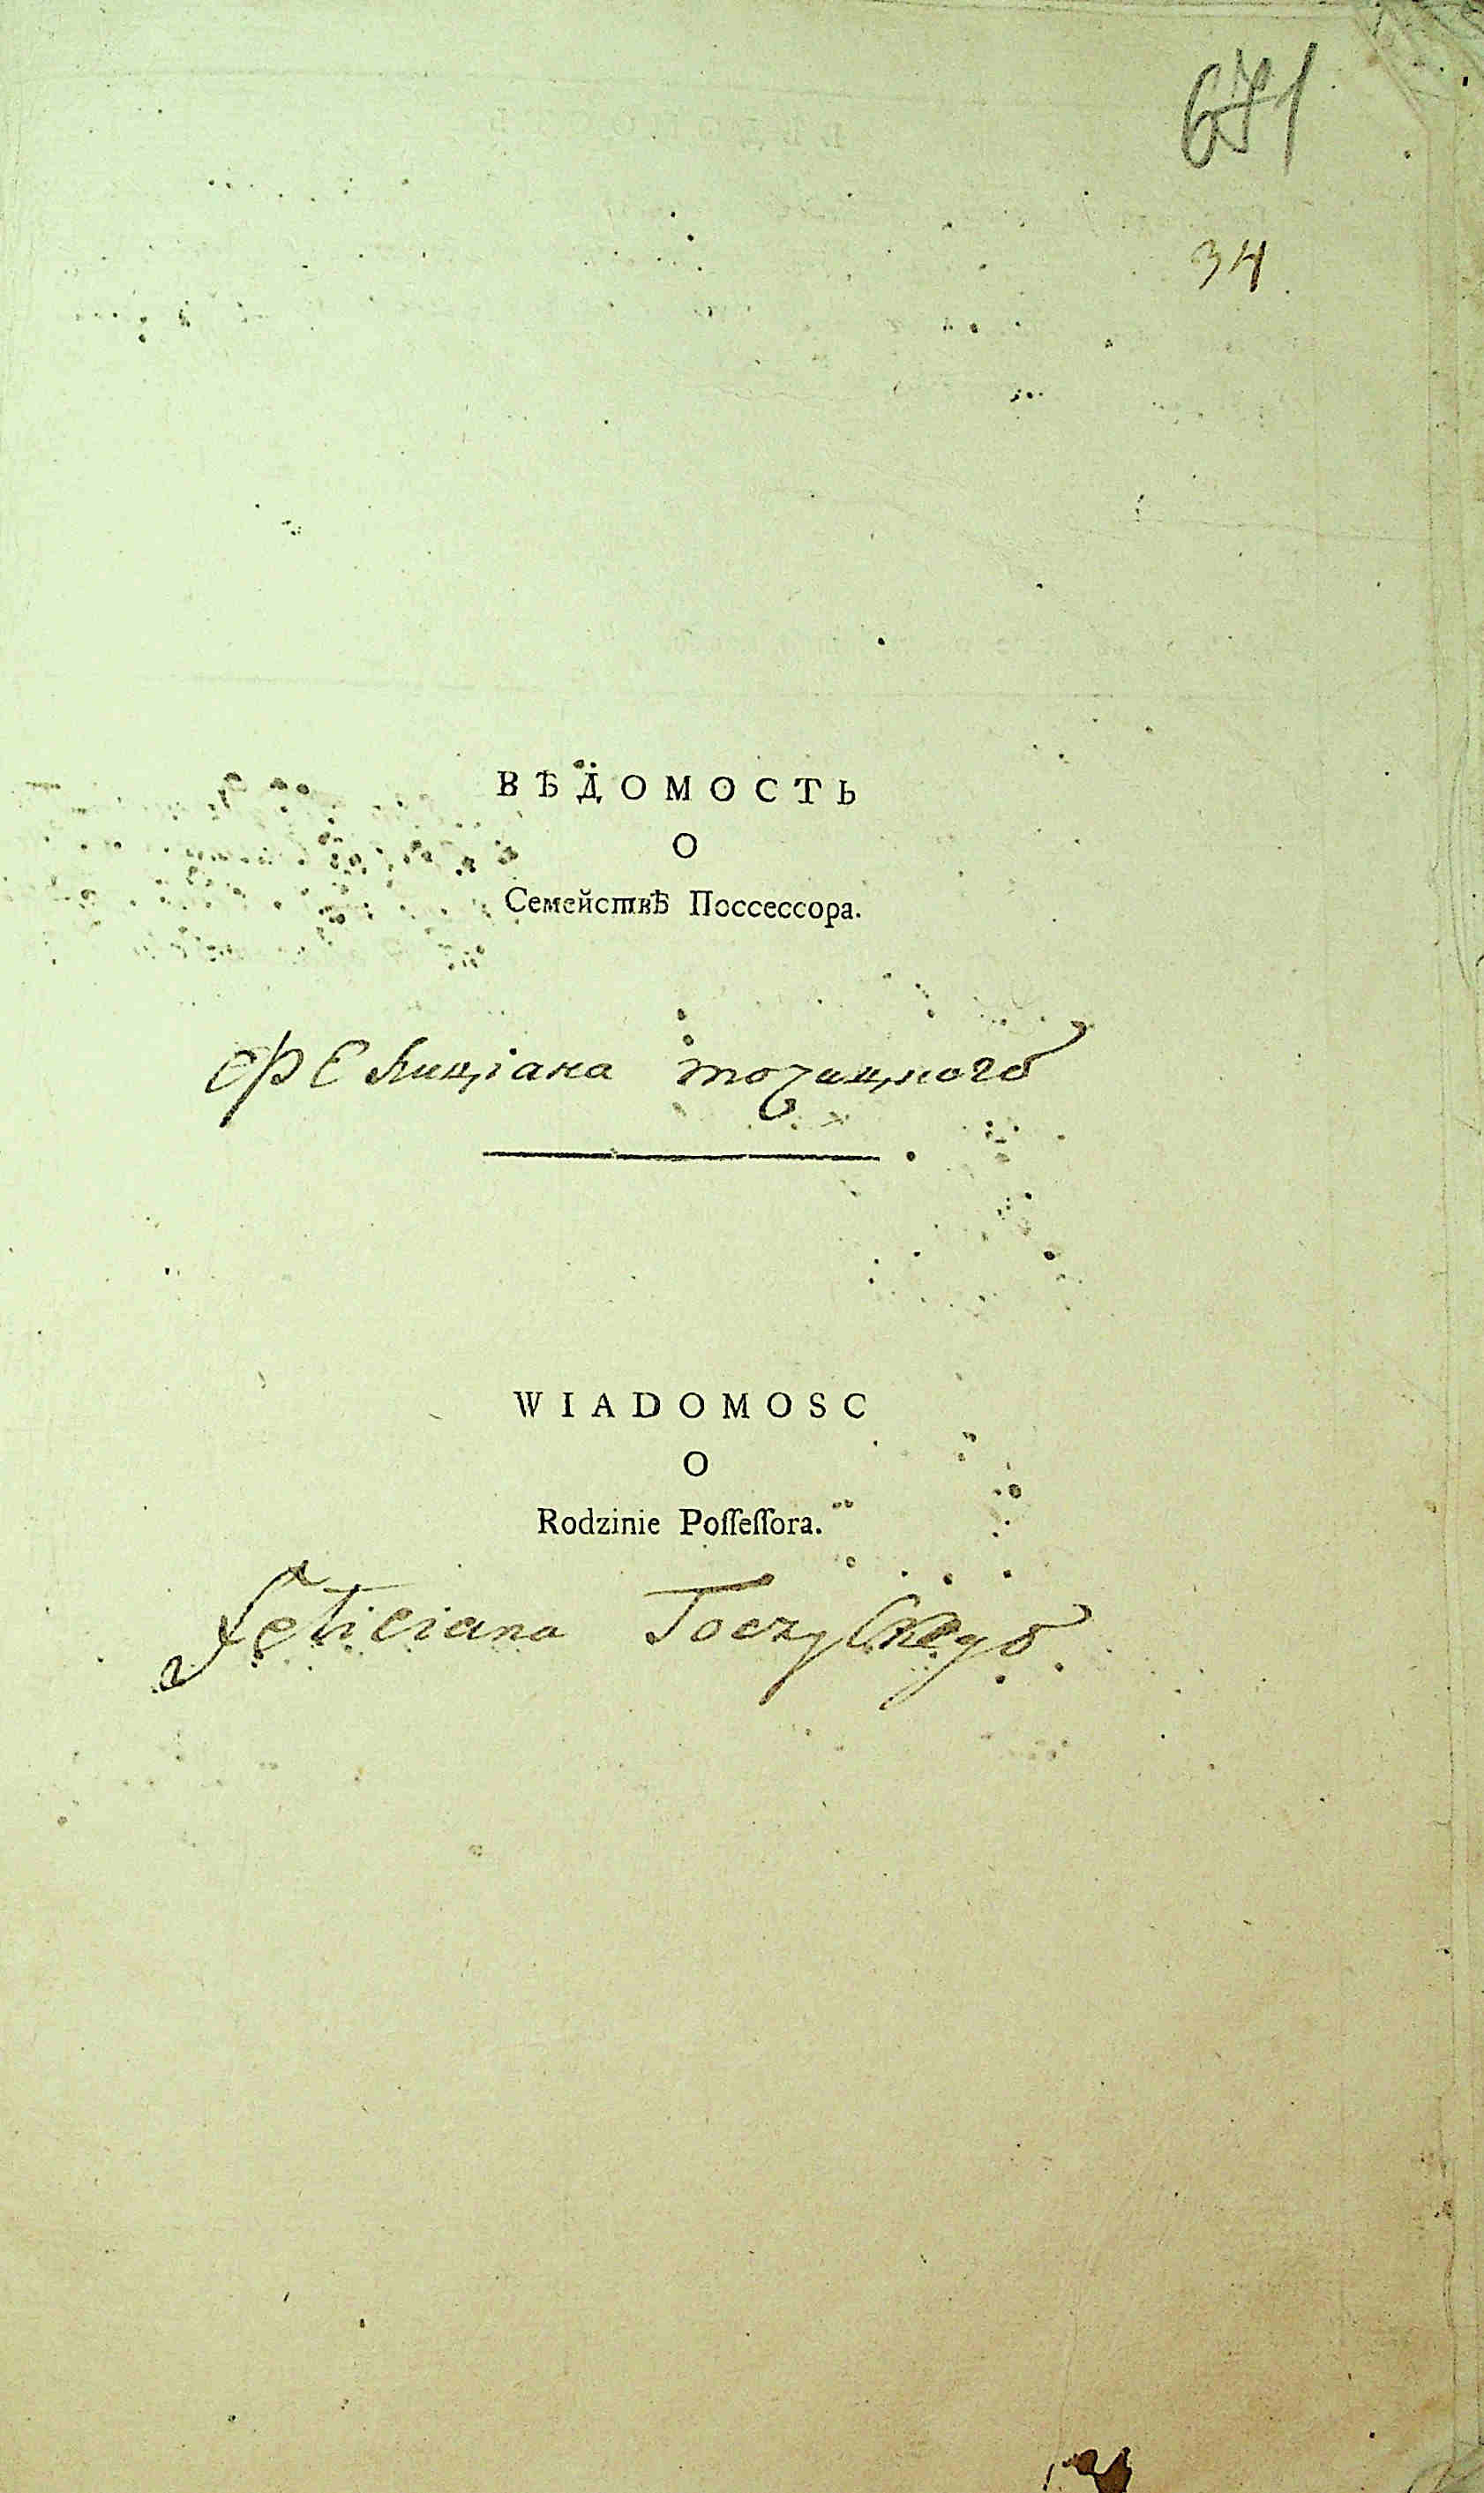 671
34
ВѢДОМОСТЬ
О
Семействѣ Поссессора.
Фелиціана точицкого
WIADOMOSC
O
Rodzinie Poſſeſſora.
Feliciana Toczyſkego